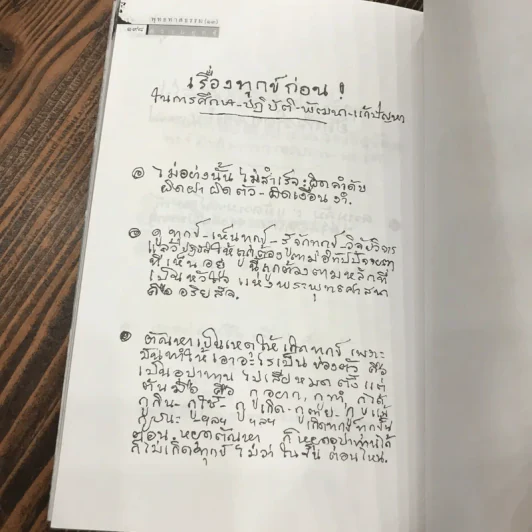 พุทธทาสธรรม
เรื่องทุกข์ก่อน !
ในการศึกษา-ปฏิบัติ-พัฒนา-แก้ปัญหา
๑ ไม่อย่างนั้น ไม่สำเร็จ: ผิดลำดับ
ผิดฝา ผิดตัว - ผิดเงื่อนงำ.
๒ ดูทุกข์-เห็นทุกข์-รู้จักทุกข์-วิจัยวิจาร
แล้ว ให้ถูกต้องตาม
ที่เห็นอยู่ นี้ถูกต้องตามหลักที่
เป็นหัวใจ แห่งพระพุทธศาสนา
คือ อริยสัจ.
๓ ตัณหาเป็นเหตุให้เกิดทุกข์ เพราะ
มันทำให้เอาอะไรเป็นของตัว คือ
เป็นอุปาทาน ไปเสียหมด ตั้งแต่
ต้นมือ คือ กูอยาก, กูทำ กูได้
กูกิน- กูใช้- กูเกิด- กูตาย- กูแพ้
กูชนะ -ฯลฯ ฯลฯ เกิดทุกข์ทุกขั้น
ตอน. หยุดตัณหา ก็หยุดอุปาทานได้
ก็ไม่เกิดทุกข์ ไม่ว่า ในขั้น ตอนไหน.